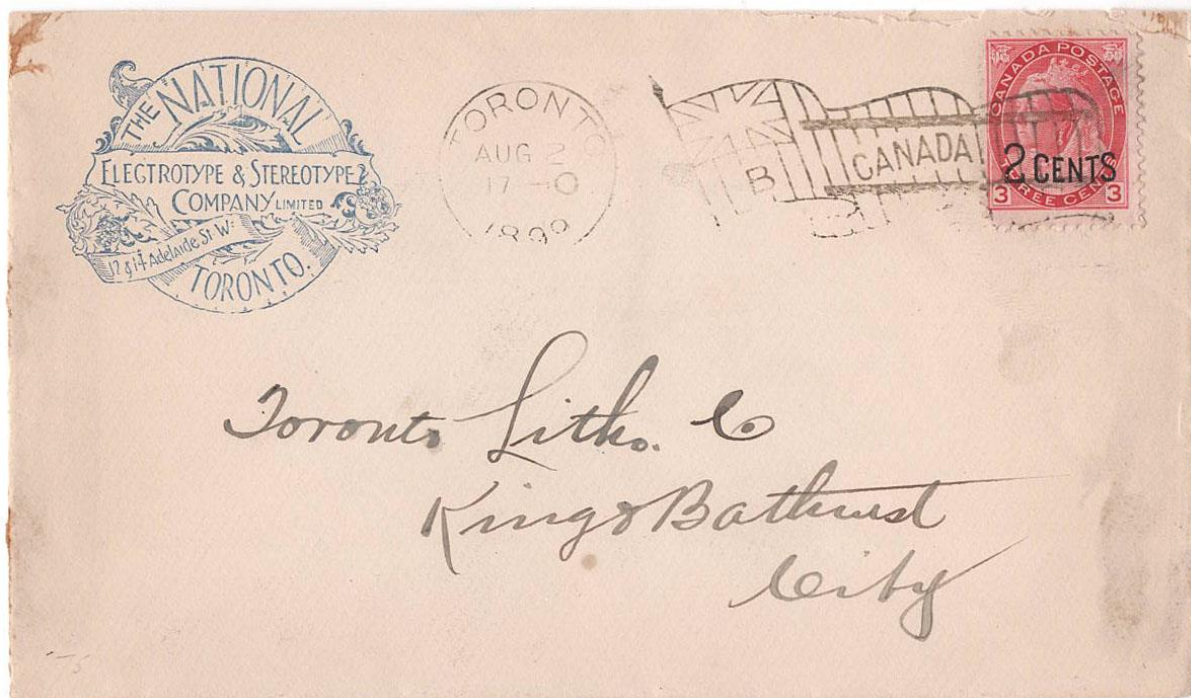 THE NATIONAL
ELECTROTYPE & STEREOTYPE
COMPANY LIMITED
12 & 14 Adelaide St. W.
TORONTO.
TORONTO
AUG 2
17-0
1899
B
CANADA
CANADA POSTAGE
2 CENTS
THREE CENTS
3 3
Toronto Litho. Co
King & Bathurst
City